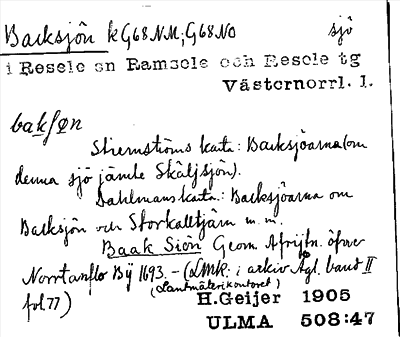 Backsjön k G68NM; G68NO sjö
i Resele on Ramsele och Resele tg
Västernorrl. l.
bakʃøn
Stiernströms karta: Backsjöarna (om
denna sjö jämte Skäljsjön).
Dahlmans karta: Backsjöarna om
Backsjön och Storkalltjärn m. m.
Baak Siön Geom Afrijtn. öfver
Norrtanflo Bÿ 1693. – (Lmk: i arkiv Ågl. band II
fol 77) (Lantmäterikontoret)
H.Geijer 1905
ULMA 508:47